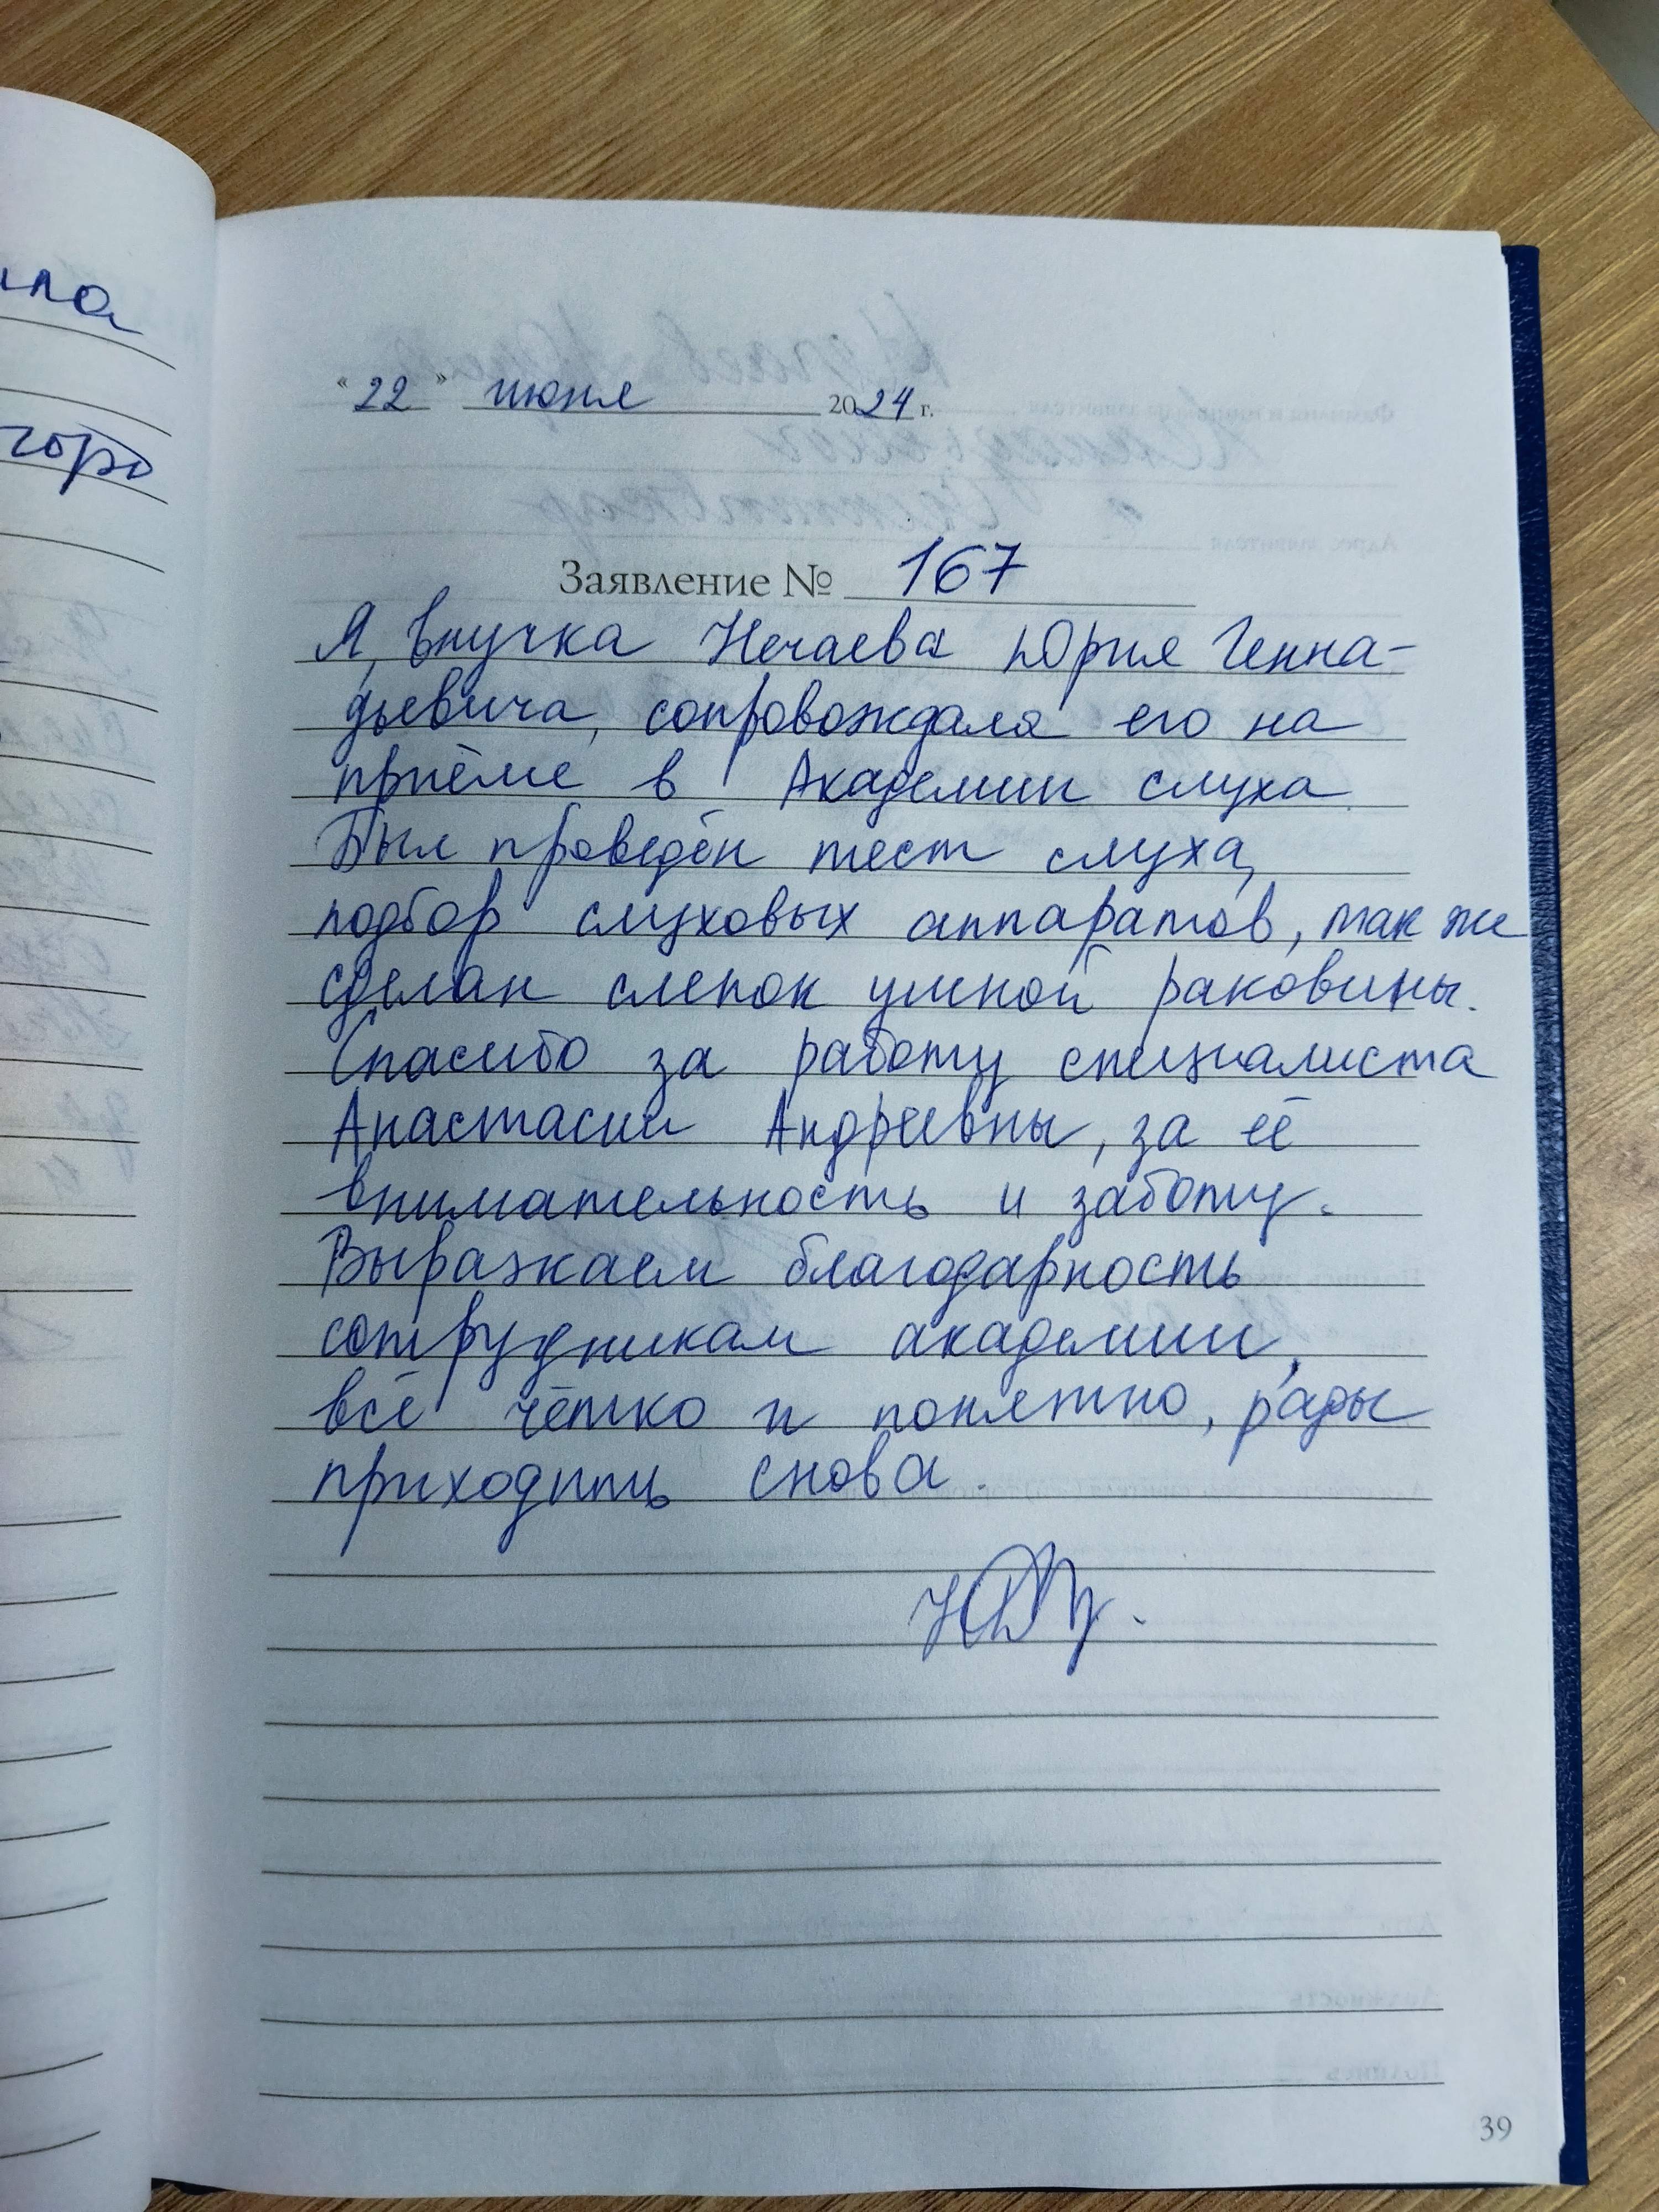 ила
горо
"22" июня 2024 г.
Заявление № 167
Я, внучка Нечаева Юрия Генна-
дьевича, сопровождала его на
приёме в Академии слуха.
Был проведён тест слуха,
подбор слуховых аппаратов, так же
сделан слепок ушной раковины.
Спасибо за работу специалиста
Анастасии Андреевны, за её
внимательность и заботу.
Выражаем благодарность
сотрудникам академии,
всё чётко и понятно, рады
приходить снова.
39